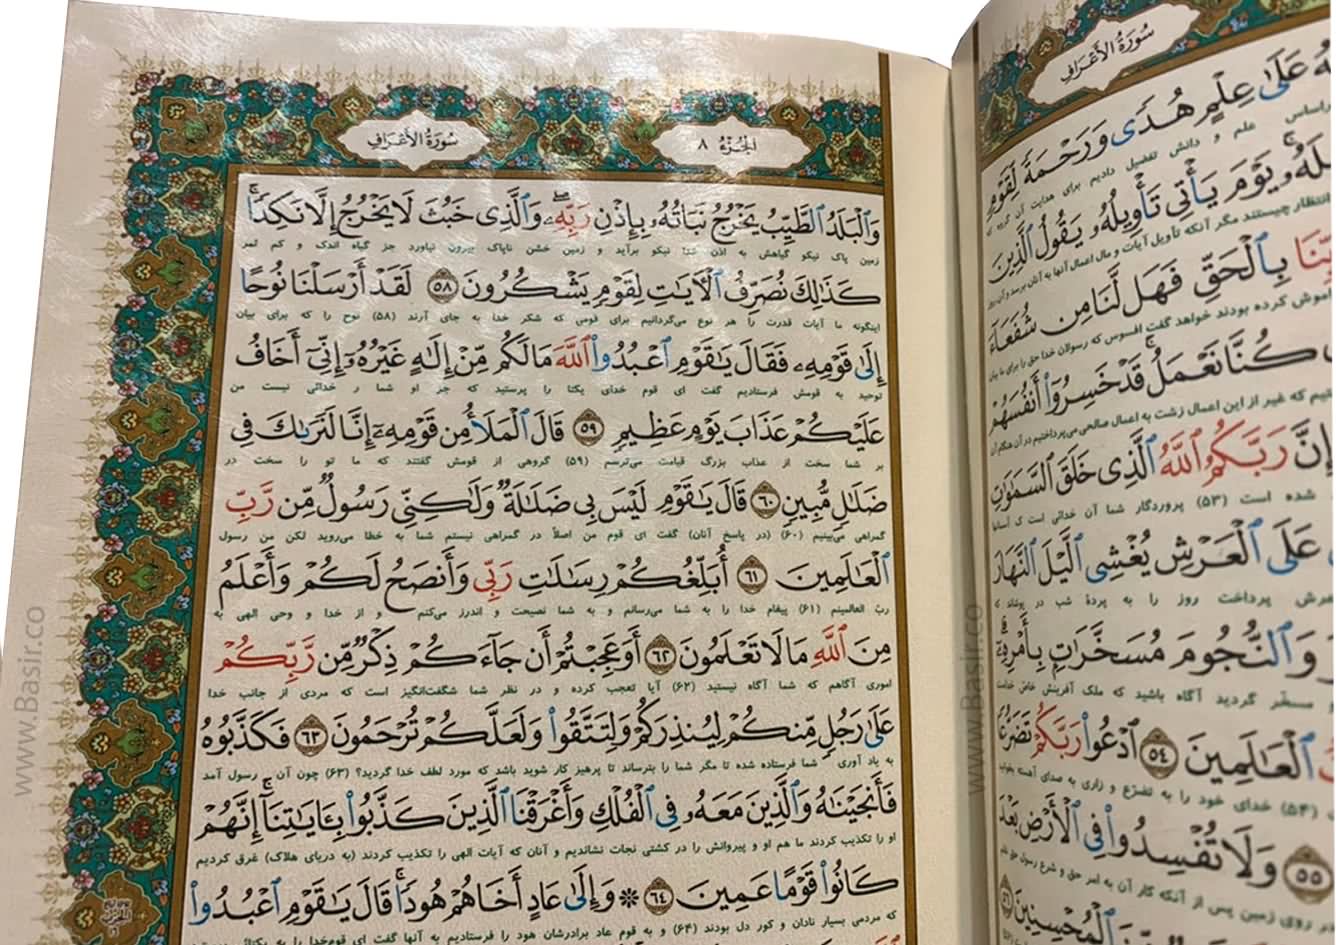 سُورَةُ الأَعْرَافِ
عَلَىٰ عِلْمٍ هُدًى وَرَحْمَةً لِّقَوْمٍ
علم و دانش تفضیل دادیم برای هدایت آن گروه که
يَوْمَ يَأْتِي تَأْوِيلُهُ يَقُولُ الَّذِينَ
انتظار چیستند مگر آنکه تأویل آیات و مآل اعمال آنها به آنان برسد و آن روز
بِالْحَقِّ فَهَل لَّنَا مِن شُفَعَاءَ
بودند خواهد گفت افسوس که رسولان خدا حق را برای ما بیان
كُنَّا نَعْمَلُ ۚ قَدْ خَسِرُوا أَنفُسَهُمْ
که غیر از این اعمال زشت به اعمال صالحی می‌پرداختیم در آن هنگام آن
إِنَّ رَبَّكُمُ اللَّهُ الَّذِي خَلَقَ السَّمَاوَاتِ
شده است (۵۳) پروردگار شما آن خدائی است که آسمانها
عَلَى الْعَرْشِ يُغْشِي اللَّيْلَ النَّهَارَ
پرداخت روز را به پردهٔ شب در پوشاند که
وَالنُّجُومَ مُسَخَّرَاتٍ بِأَمْرِهِ ۗ
مسخّر گردید آگاه باشید که ملک آفرینش خاص خداست
الْعَالَمِينَ ٥٤ ادْعُوا رَبَّكُمْ تَضَرُّعًا
(۵۴) خدای خود را به تضرّع و زاری به صدای آهسته بخوانید
٥٥ وَلَا تُفْسِدُوا فِي الْأَرْضِ بَعْدَ
روی زمین پس از آنکه کار آن به امر حق و شرع رسول حق نظم
الْمُحْسِنِينَ ٥٦
الجُزْءُ ٨
سُورَةُ الأَعْرَافِ
وَالْبَلَدُ الطَّيِّبُ يَخْرُجُ نَبَاتُهُ بِإِذْنِ رَبِّهِ ۖ وَالَّذِي خَبُثَ لَا يَخْرُجُ إِلَّا نَكِدًا ۚ
زمین پاک نیکو گیاهش به اذن خدا نیکو برآید و زمین خشن ناپاک بیرون نیاورد جز گیاه اندک و کم ثمر
كَذَٰلِكَ نُصَرِّفُ الْآيَاتِ لِقَوْمٍ يَشْكُرُونَ ٥٨ لَقَدْ أَرْسَلْنَا نُوحًا
اینگونه ما آیات قدرت را هر نوع می‌گردانیم برای قومی که شکر خدا به جای آرند (۵۸) نوح را که برای بیان
إِلَىٰ قَوْمِهِ فَقَالَ يَا قَوْمِ اعْبُدُوا اللَّهَ مَا لَكُم مِّنْ إِلَٰهٍ غَيْرُهُ إِنِّي أَخَافُ
توحید به قومش فرستادیم گفت ای قوم خدای یکتا را پرستید که جز او شما را خدائی نیست من
عَلَيْكُمْ عَذَابَ يَوْمٍ عَظِيمٍ ٥٩ قَالَ الْمَلَأُ مِن قَوْمِهِ إِنَّا لَنَرَاكَ فِي
بر شما سخت از عذاب بزرگ قیامت می‌ترسم (۵۹) گروهی از قومش گفتند که ما تو را سخت در
ضَلَالٍ مُّبِينٍ ٦٠ قَالَ يَا قَوْمِ لَيْسَ بِي ضَلَالَةٌ وَلَٰكِنِّي رَسُولٌ مِّن رَّبِّ
گمراهی می‌بینیم (۶۰) (در پاسخ آنان) گفت ای قوم من اصلاً در گمراهی نیستم شما به خطا می‌روید لکن من رسول
الْعَالَمِينَ ٦١ أُبَلِّغُكُمْ رِسَالَاتِ رَبِّي وَأَنصَحُ لَكُمْ وَأَعْلَمُ
ربّ العالمینم (۶۱) پیغام خدا را به شما می‌رسانم و به شما نصیحت و اندرز می‌کنم و از خدا و وحی الهی به
مِنَ اللَّهِ مَا لَا تَعْلَمُونَ ٦٢ أَوَعَجِبْتُمْ أَن جَاءَكُمْ ذِكْرٌ مِّن رَّبِّكُمْ
اموری آگاهم که شما آگاه نیستید (۶۲) آیا تعجب کرده و در نظر شما شگفت‌انگیز است که مردی از جانب خدا
عَلَىٰ رَجُلٍ مِّنكُمْ لِيُنذِرَكُمْ وَلِتَتَّقُوا وَلَعَلَّكُمْ تُرْحَمُونَ ٦٣ فَكَذَّبُوهُ
به یاد آوری شما فرستاده شده تا مگر شما را بترساند تا پرهیز کار شوید باشد که مورد لطف خدا گردید؟ (۶۳) چون آن رسول آمد
فَأَنجَيْنَاهُ وَالَّذِينَ مَعَهُ فِي الْفُلْكِ وَأَغْرَقْنَا الَّذِينَ كَذَّبُوا بِآيَاتِنَا ۚ إِنَّهُمْ
او را تکذیب کردند ما هم او و پیروانش را در کشتی نجات نشاندیم و آنان که آیات الهی را تکذیب کردند (به دریای هلاک) غرق کردیم
كَانُوا قَوْمًا عَمِينَ ٦٤ ۞ وَإِلَىٰ عَادٍ أَخَاهُمْ هُودًا ۗ قَالَ يَا قَوْمِ اعْبُدُوا
که مردمی بسیار نادان و کور دل بودند (۶۴) و به قوم عاد برادرشان هود را فرستادیم به آنها گفت ای قوم خدا را به یکتائی
www.Basir.co
www.Basir.co